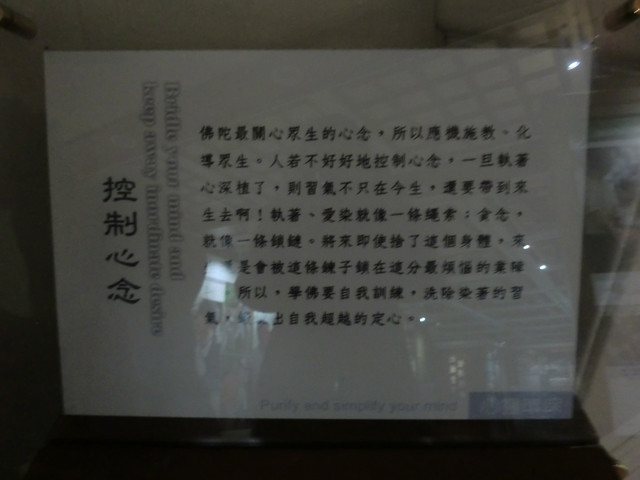 控制心念
Bridle your mind and
keep away inordinate desire
佛陀最關心眾生的心念，所以應機施教。化
導眾生。人若不好好地控制心念，一旦執著
心深植了，則習氣不只在今生，還要帶到來
生去啊！執著、愛染就像一條繩索；貪念，
就像一條鎖鏈。將來即使捨了這個身體，來
是會被這條鍊子鎖在這分最煩惱的業障
所以，學佛要自我訓練，洗除染著的習
氣，出自我超越的定心。
Purify and simplify your mind